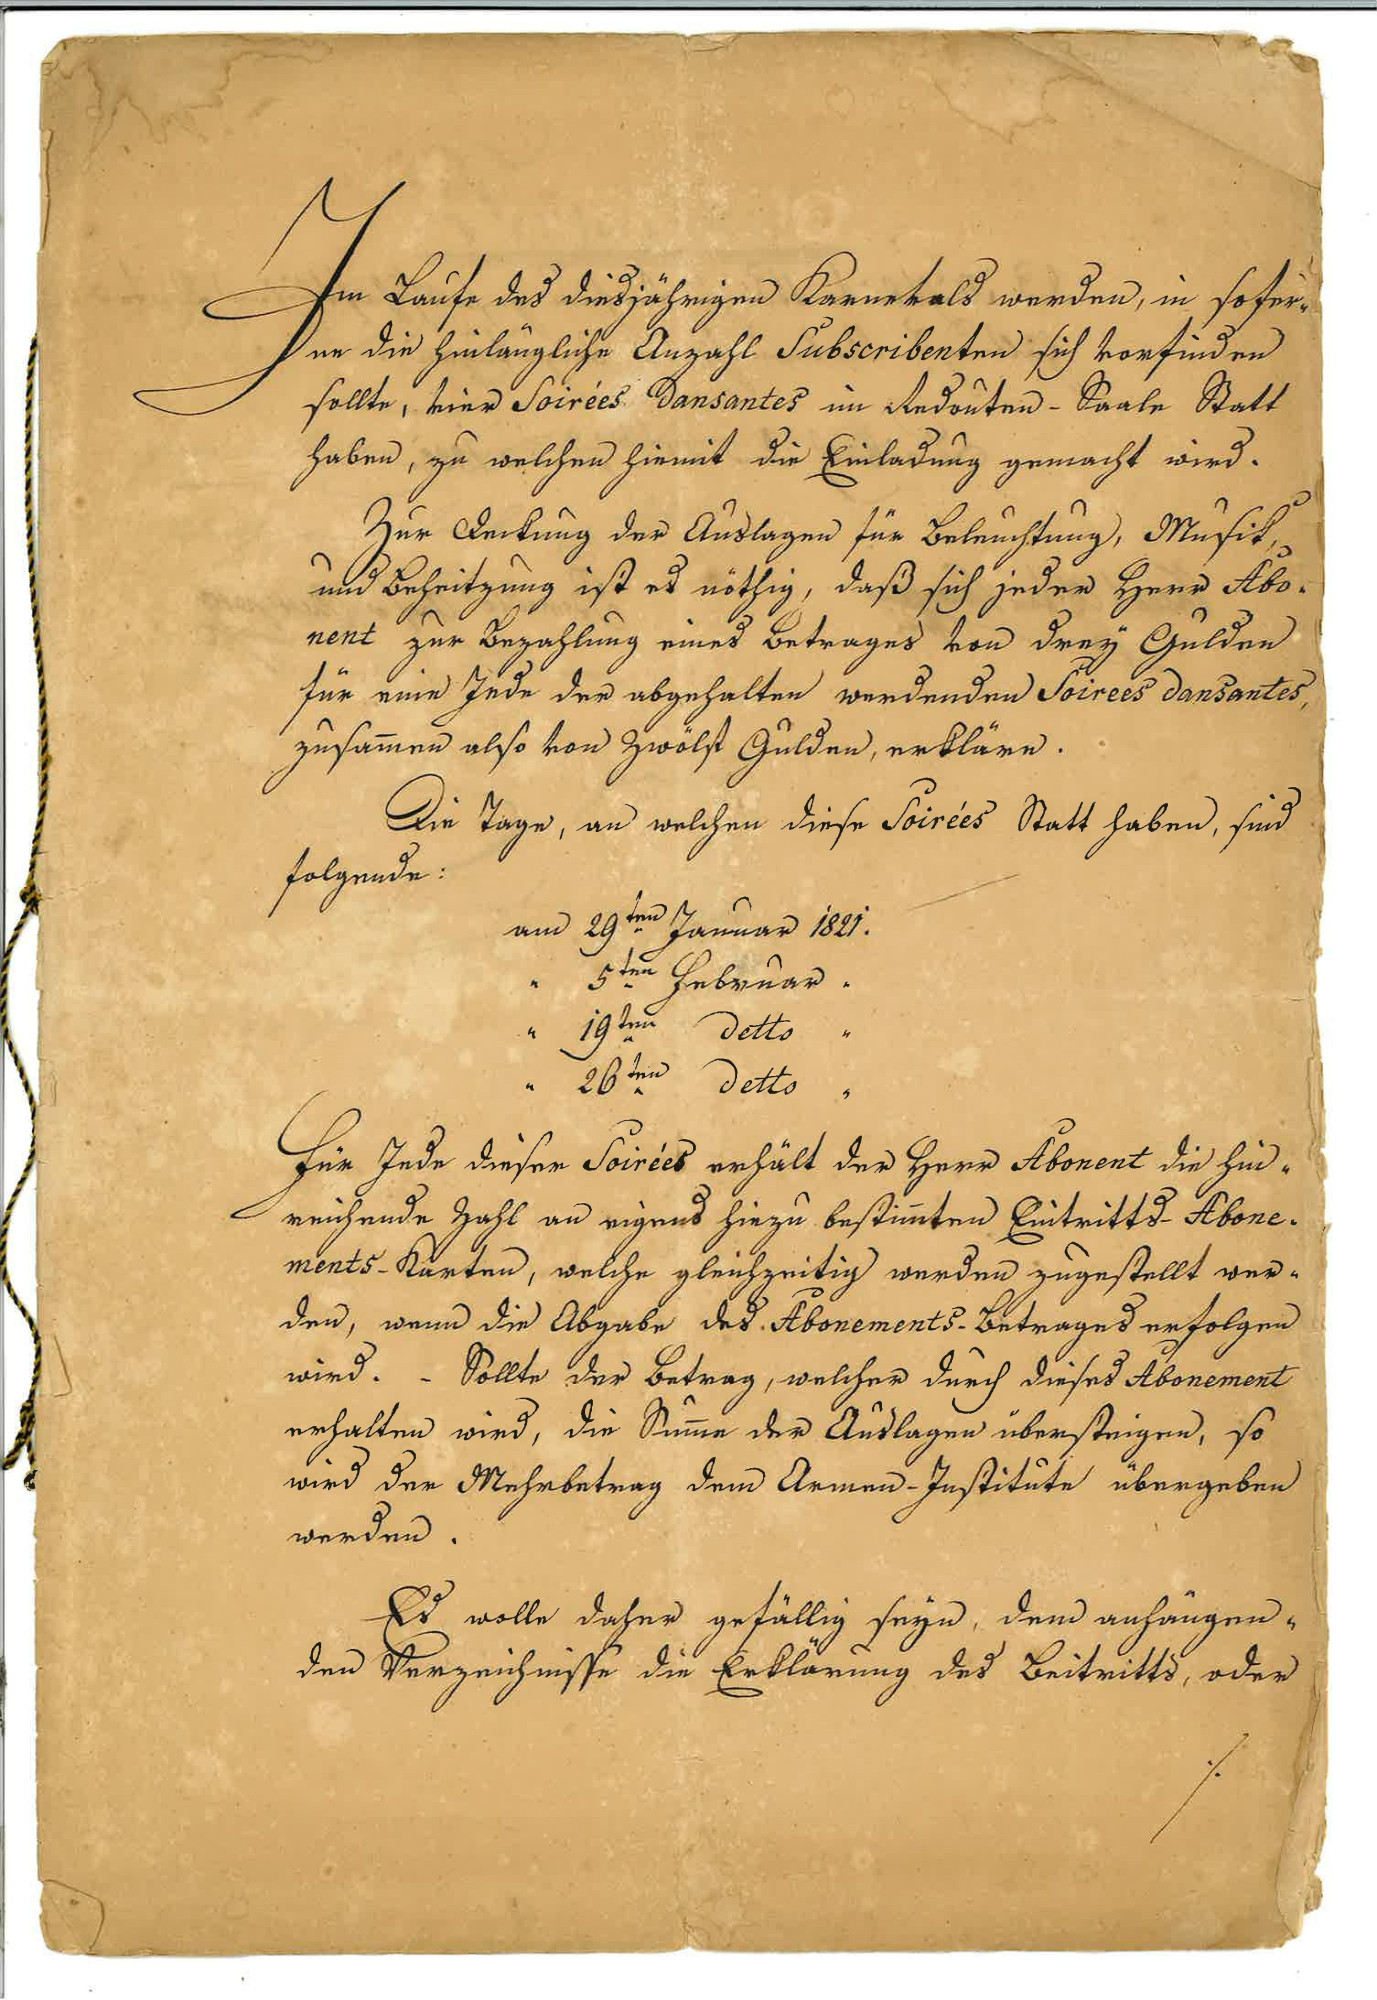 Im Laufe des diesjährigen Karnevals werden, in sofer-
ne die hinlängliche Anzahl Subscribenten sich vorfinden
sollte, vier Soirées dansantes im Redouten-Saale Statt
haben, zu welchen hiemit die Einladung gemacht wird.
Zur Deckung der Auslagen für Beleuchtung, Musik,
und Beheitzung ist es nöthig, daß sich jeder Herr Abo-
nent zur Bezahlung eines Betrages von drey Gulden
für eine Jede der abgehalten werdenden Soirees dansantes,
zusam̄en also von zwölf Gulden, erkläre.
Die Tage, an welchen diese Soirées Statt haben, sind
folgende:
am 29ten Januar 1821.
" 5ten Februar "
" 19ten detto "
" 26ten detto "
Für Jede dieser Soirées erhält der Herr Abonent die hin-
reichende Zahl an eigens hiezu bestim̄ten Eintritts-Abone-
ments-Karten, welche gleichzeitig werden zugestellt wer-
den, wenn die Abgabe des Abonements-Betrages erfolgen
wird. - Sollte der Betrag, welcher durch dieses Abonement
erhalten wird, die Sum̄e der Auslagen übersteigen, so
wird der Mehrbetrag dem Armen-Institute übergeben
werden.
Es wolle daher gefällig seyn, dem anhängen-
den Verzeichnisse die Erklärung des Beitritts, oder
./.